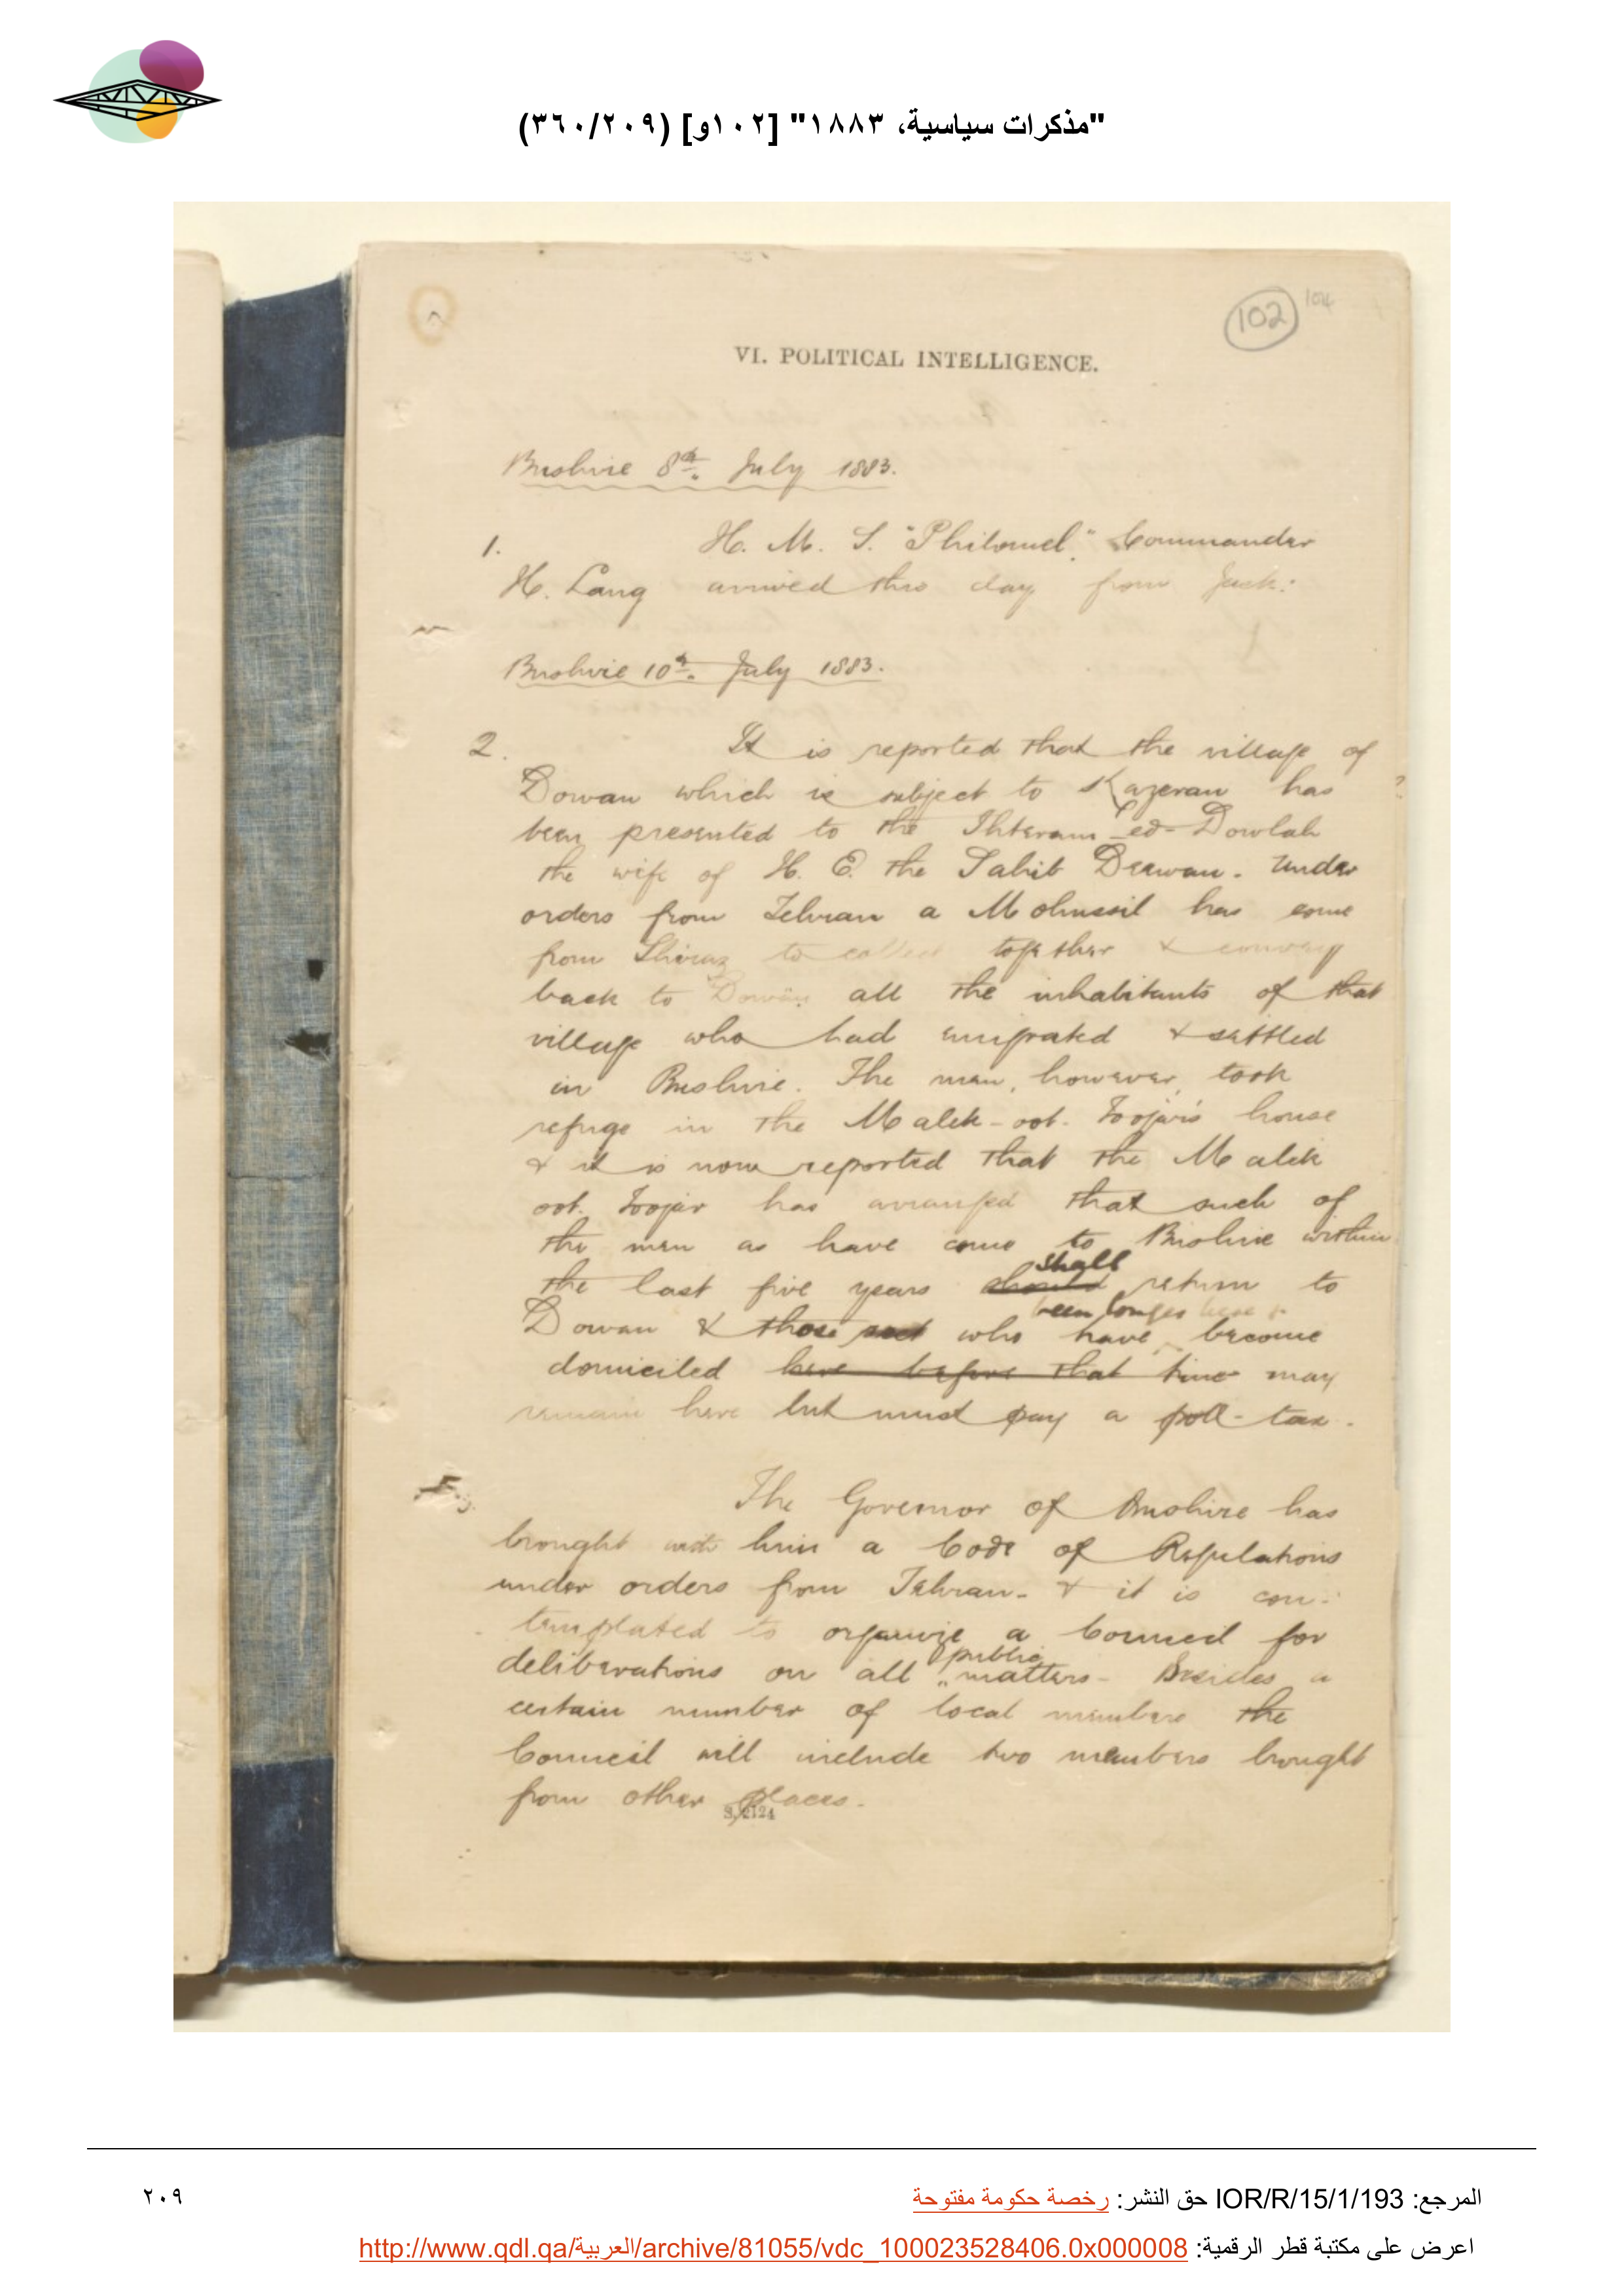 "مذكرات سياسية، ١٨٨٣" [١٠٢و] (٣٦٠/٢٠٩)
102
104
VI. POLITICAL INTELLIGENCE.
Bushire 8th. July 1883.
1. H. M. S. "Philomel." Commander
H. Lang arrived this day from Jask:
Bushire 10th. July 1883.
2. It is reported that the village of
Dowan which is subject to Kazeran has ?
been presented to the Ihteram-ed-Dowlah
the wife of H. E. the Sahib Deewan. Under
orders from Tehran a Mohussil has come
from Shiraz to collect together & convey
back to Dowan all the inhabitants of that
village who had emigrated & settled
in Bushire. The men, however, took
refuge in the Malek-oot-Toojar's house
& it is now reported that the Malek
oot. Toojar has arranged that such of
the men as have come to Bushire within
shall
the last five years should return to
been longer here &
Dowan & those who have become
domiciled here before that time may
remain here but must pay a poll-tax.
3. The Governor of Bushire has
brought with him a Code of Regulations
under orders from Tehran- & it is con-
templated to organize a Council for
public
deliberations on all matters- Besides a
certain number of local members the
Council will include two members brought
from other places.
S. 2124
المرجع: IOR/R/15/1/193 حق النشر: رخصة حكومة مفتوحة
٢٠٩
اعرض على مكتبة قطر الرقمية: http://www.qdl.qa/العربية/archive/81055/vdc_100023528406.0x000008